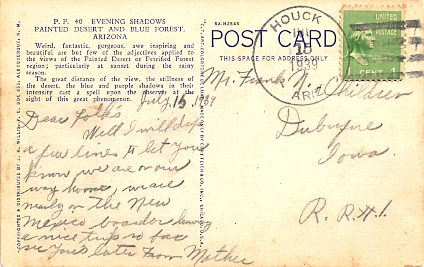 P. F. 40 EVENING SHADOWS
PAINTED DESERT AND BLUE FOREST,
ARIZONA
Weird, fantastic, gorgeous, awe inspiring and
beautiful are but few of the adjectives applied to
the views of the Painted Desert or Petrified Forest
region; particularly at sunset during the rainy
season.
The great distance of the view, the stillness of
the desert, the blue and purple shadows in their
intensity cast a spell upon the observer at the
sight of this great phenomenon.
July 15 1939
Dear Folks
Well I will drop
a few lines to let you
know we are on our
way home, we are
nearly on The New
Mexico boarder having
a nice trip so far
see you later from Mother
5A-H2545
POST CARD
THIS SPACE FOR ADDRESS ONLY
HOUCK
JUL
15
1939
ARIZ.
UNITED
POSTAGE
1 CENT 1
Mr. Frank
Dubuque
Iowa
R. R. #1.